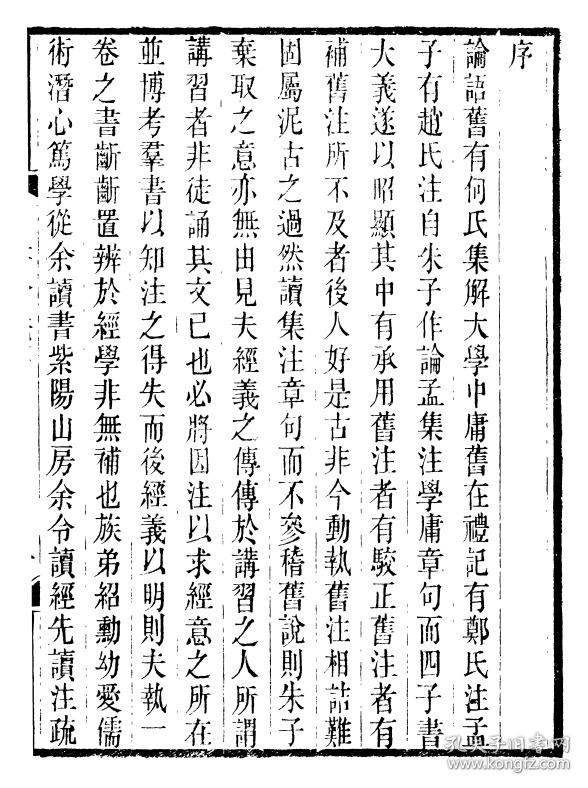 序
論語舊有何氏集解大學中庸舊在禮記有鄭氏注孟
子有趙氏注自朱子作論孟集注學庸章句而四子書
大義遂以昭顯其中有承用舊注者有駮正舊注者有
補舊注所不及者後人好是古非今動執舊注相詰難
固屬泥古之過然讀集注章句而不參稽舊說則朱子
棄取之意亦無由見夫經義之傳傳於講習之人所謂
講習者非徒誦其文已也必將因注以求經意之所在
並博考羣書以知注之得失而後經義以明則夫執一
卷之書齗齗置辨於經學非無補也族弟紹勳幼愛儒
術潛心篤學從余讀書紫陽山房余令讀經先讀注疏
孔夫子旧书网
kongfz.com